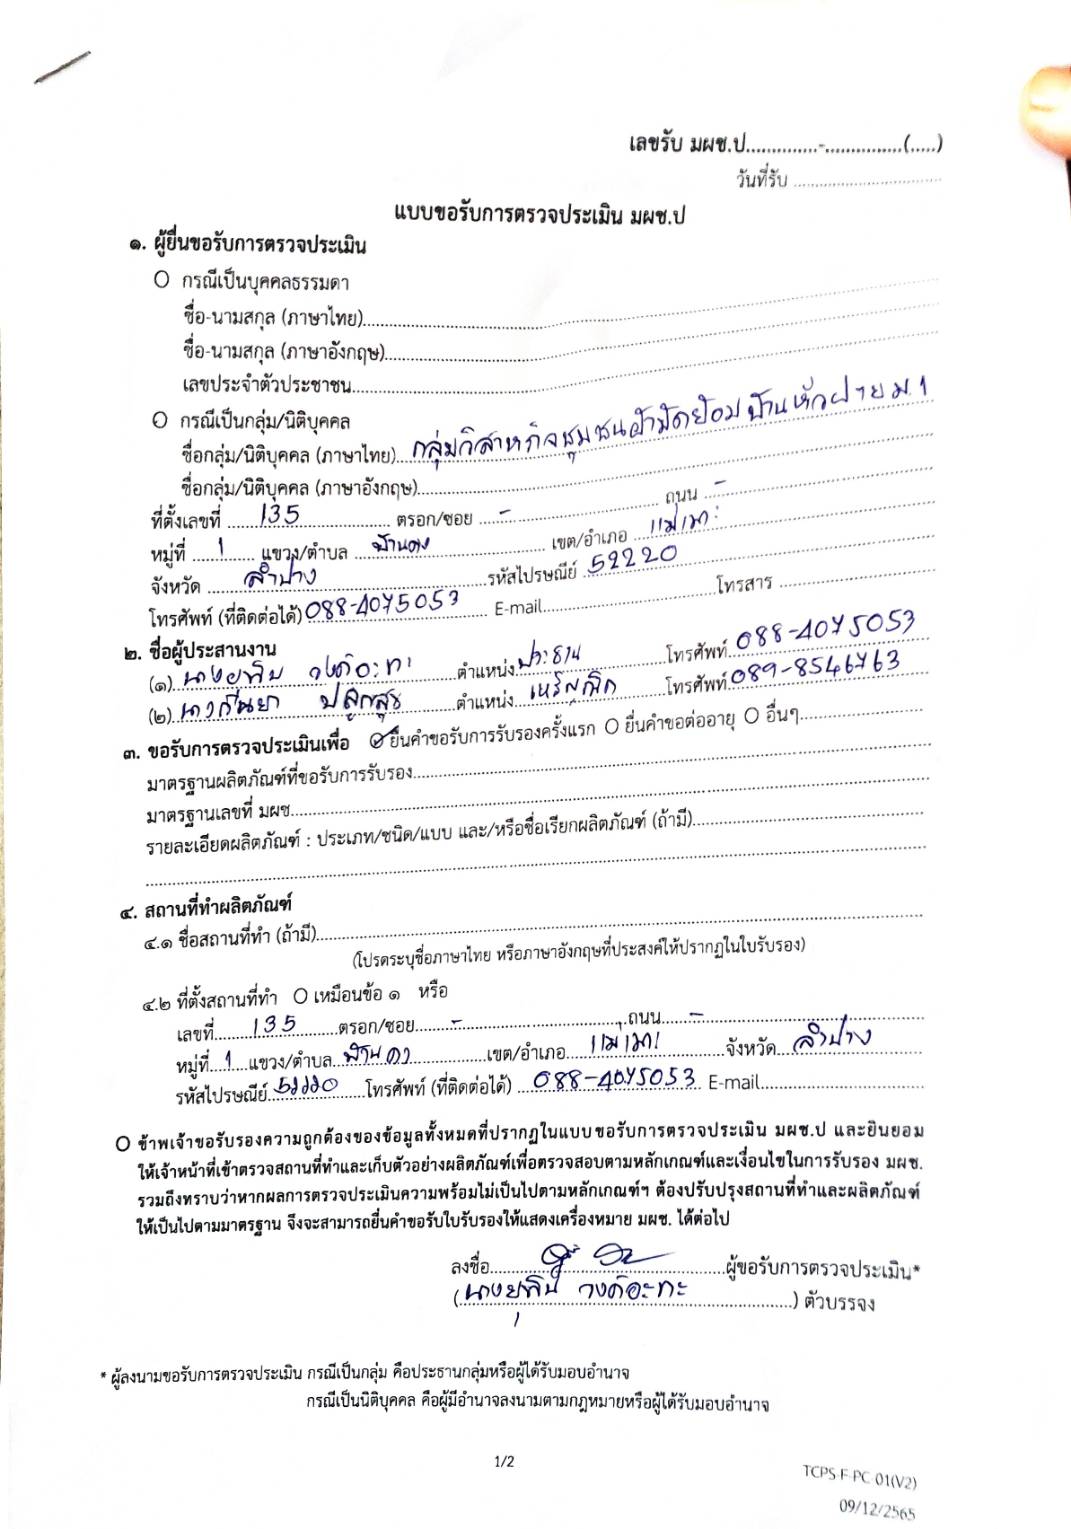 เลขรับ มผช.ป..............-...............(.....)
วันที่รับ ..............................
แบบขอรับการตรวจประเมิน มผช.ป
๑. ผู้ยื่นขอรับการตรวจประเมิน
O กรณีเป็นบุคคลธรรมดา
ชื่อ-นามสกุล (ภาษาไทย)..............................
ชื่อ-นามสกุล (ภาษาอังกฤษ)..............................
เลขประจำตัวประชาชน..............................
O กรณีเป็นกลุ่ม/นิติบุคคล
ชื่อกลุ่ม/นิติบุคคล (ภาษาไทย)...กลุ่มวิสาหกิจชุมชนผ้ามัดย้อมบ้านหัวฝายม.1
ชื่อกลุ่ม/นิติบุคคล (ภาษาอังกฤษ)..............................
ที่ตั้งเลขที่ ......135...... ตรอก/ซอย ...-... ถนน ...-...
หมู่ที่ ...1... แขวง/ตำบล ...บ้านดง... เขต/อำเภอ ...แม่เมาะ...
จังหวัด ...ลำปาง... รหัสไปรษณีย์ ...52220...
โทรศัพท์ (ที่ติดต่อได้) 088-4075053 E-mail.................... โทรสาร ....................
๒. ชื่อผู้ประสานงาน
(๑)...นางยุพิน วงค์อะทะ...ตำแหน่ง...ประธาน...โทรศัพท์...088-4075053
(๒)...ปลูกสุข...ตำแหน่ง...เหรัญญิก...โทรศัพท์...089-8546763
๓. ขอรับการตรวจประเมินเพื่อ ✓ ยื่นคำขอรับการรับรองครั้งแรก O ยื่นคำขอต่ออายุ O อื่นๆ....................
มาตรฐานผลิตภัณฑ์ที่ขอรับการรับรอง..............................
มาตรฐานเลขที่ มผช...............................
รายละเอียดผลิตภัณฑ์ : ประเภท/ชนิด/แบบ และ/หรือชื่อเรียกผลิตภัณฑ์ (ถ้ามี)..............................
๔. สถานที่ทำผลิตภัณฑ์
๔.๑ ชื่อสถานที่ทำ (ถ้ามี)..............................
(โปรดระบุชื่อภาษาไทย หรือภาษาอังกฤษที่ประสงค์ให้ปรากฏในใบรับรอง)
๔.๒ ที่ตั้งสถานที่ทำ O เหมือนข้อ ๑ หรือ
เลขที่......135......ตรอก/ซอย...-...ถนน...-...
หมู่ที่...1...แขวง/ตำบล...บ้านดง...เขต/อำเภอ...แม่เมาะ...จังหวัด...ลำปาง...
รหัสไปรษณีย์...52220...โทรศัพท์ (ที่ติดต่อได้) ...088-4075053 E-mail....................
O ข้าพเจ้าขอรับรองความถูกต้องของข้อมูลทั้งหมดที่ปรากฏในแบบขอรับการตรวจประเมิน มผช.ป และยินยอม
ให้เจ้าหน้าที่เข้าตรวจสถานที่ทำและเก็บตัวอย่างผลิตภัณฑ์เพื่อตรวจสอบตามหลักเกณฑ์และเงื่อนไขในการรับรอง มผช.
รวมถึงทราบว่าหากผลการตรวจประเมินความพร้อมไม่เป็นไปตามหลักเกณฑ์ฯ ต้องปรับปรุงสถานที่ทำและผลิตภัณฑ์
ให้เป็นไปตามมาตรฐาน จึงจะสามารถยื่นคำขอรับใบรับรองให้แสดงเครื่องหมาย มผช. ได้ต่อไป
ลงชื่อ..............................ผู้ขอรับการตรวจประเมิน*
(นางยุพิน วงค์อะทะ....................) ตัวบรรจง
* ผู้ลงนามขอรับการตรวจประเมิน กรณีเป็นกลุ่ม คือประธานกลุ่มหรือผู้ได้รับมอบอำนาจ
กรณีเป็นนิติบุคคล คือผู้มีอำนาจลงนามตามกฎหมายหรือผู้ได้รับมอบอำนาจ
1/2
TCPS-F-PC 01(V2)
09/12/2565